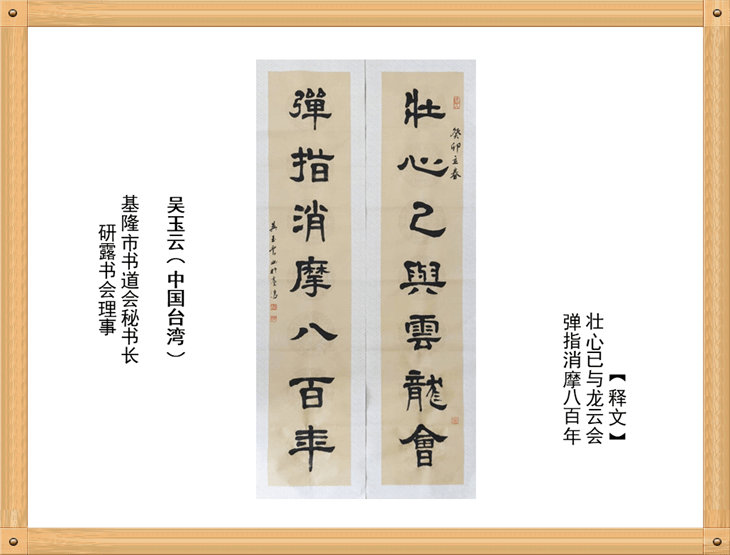 【释文】
壮心已与龙云会
弹指消摩八百年
癸卯立春
壮心已與雲龍會
彈指消摩八百年
吴玉云（中国台湾）
基隆市书道会秘书长
研露书会理事